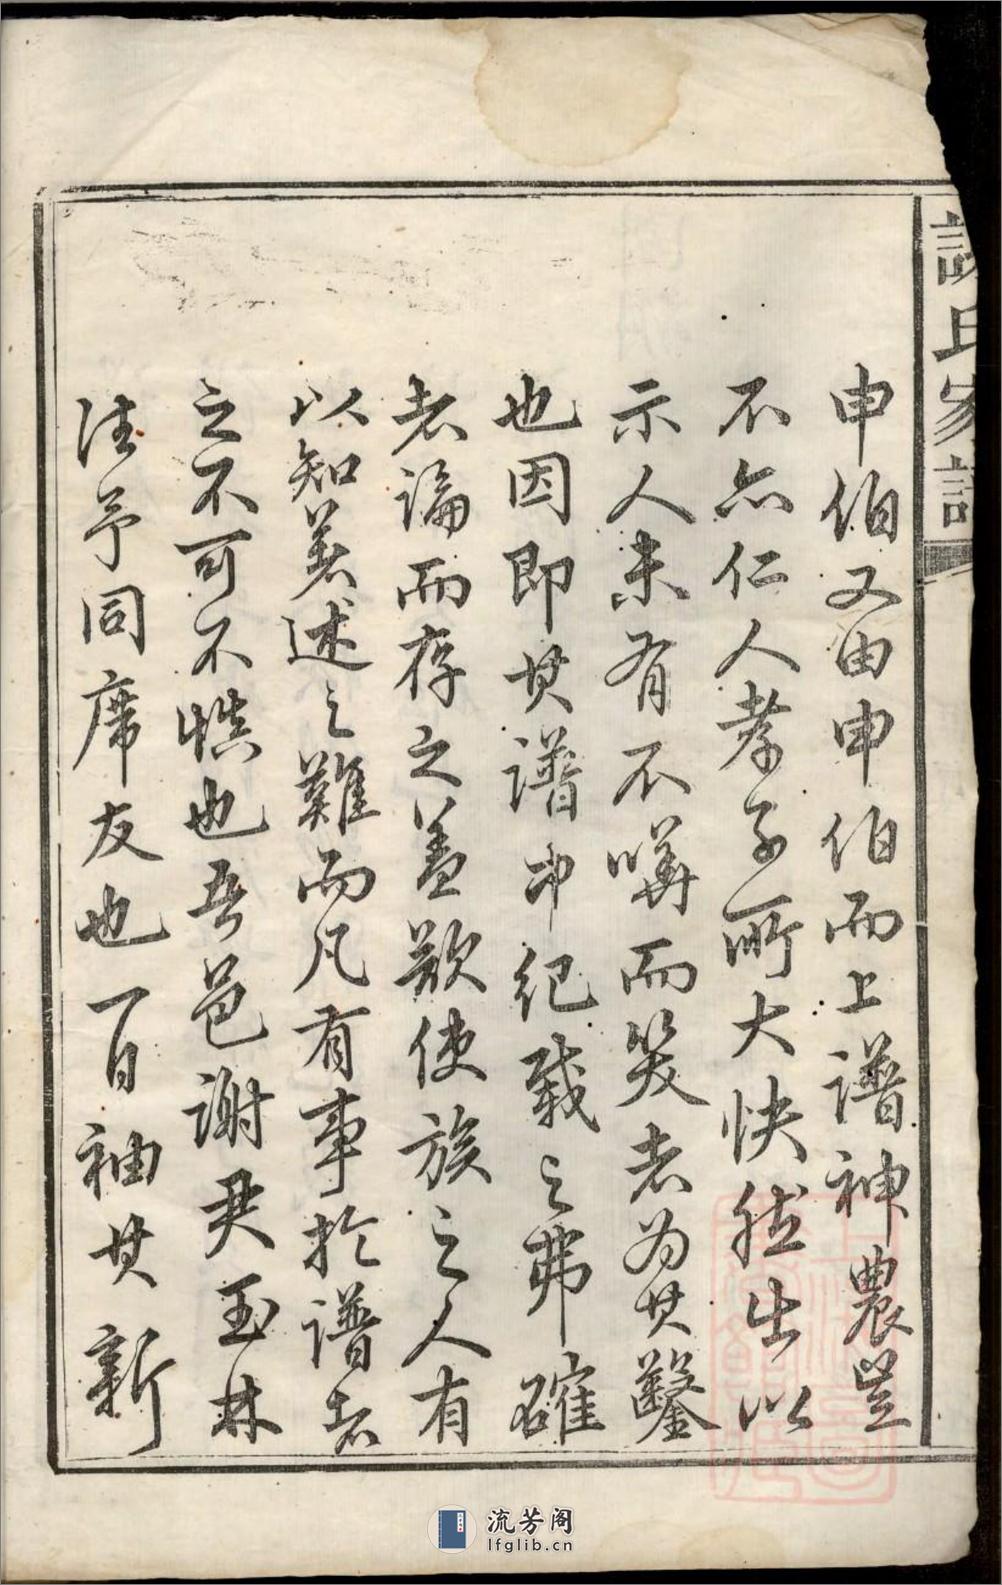 謝氏家譜
申伯又由申伯而上譜神農豈
不亦仁人孝子所大快然出以
示人未有不嘩而笑者為其鑿
也因即其譜中紀載之弗確
者論而存之蓋欲使族之人有
以知著述之難而凡有事於譜者
之不可不慎也吾邑謝尹玉林
注予同席友也一日袖其新
流芳阁
lfglib.cn